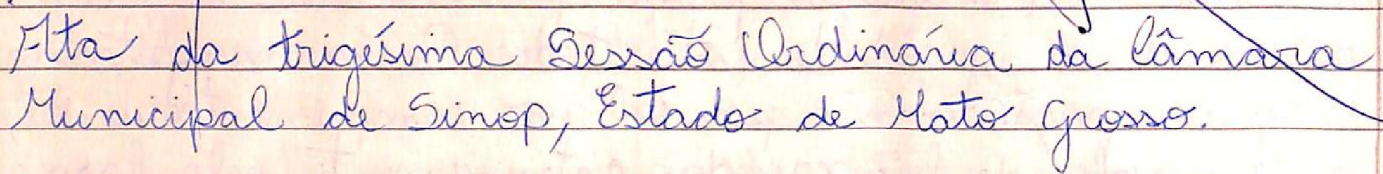 Ata da trigésima Sessão Ordinária da Câmara
Municipal de Sinop, Estado de Mato Grosso.